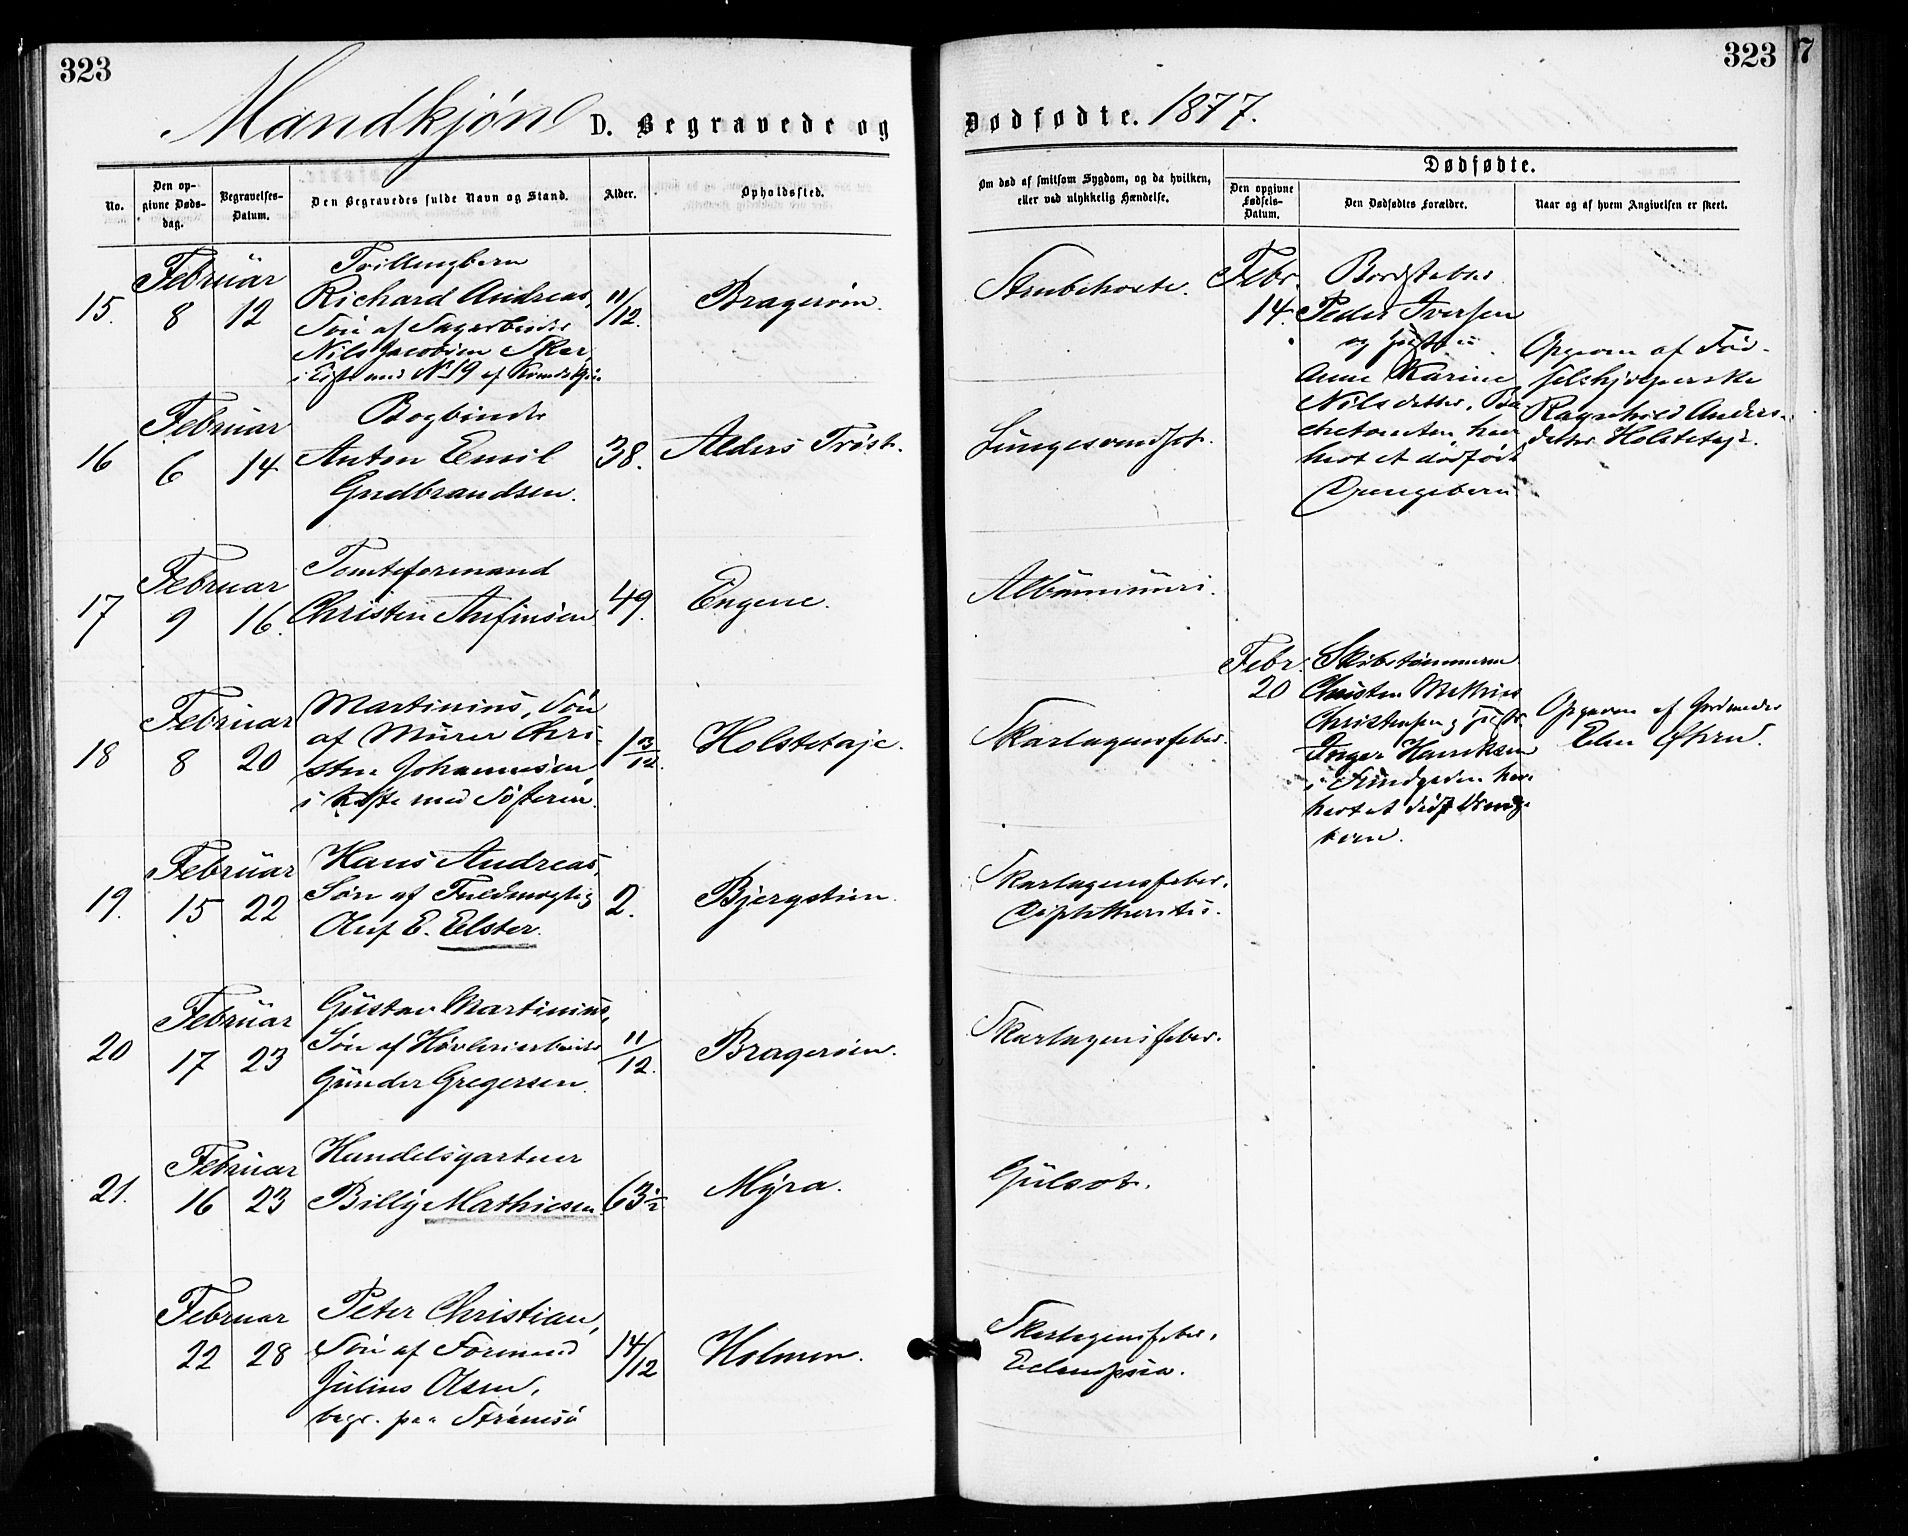 323
Mandkjøn D. Begravede og
No.
Den opgivne Dødsdag.
Begravelses-Datum.
Den Begravedes fulde Navn og Stand.
Alder.
Opholdssted.
15.
Februar
8 12
Tvillingbarn
Richard Andreas,
Søn af
Nils Jacobsen Skar,
No 19 af
11/12.
Bragerøen.
16
Februar
6 14
Bogbinder
Anton Emil
Gudbrandsen.
38.
Alders Trøst.
17
Februar
9 16.
Tomteformand
Christen Anfinsen
49.
Engene.
18
Februar
8 20
Martinius, Søn
af Murer Chri-
sten Johannesen,
i Kiste med Søsteren.
1 3/12.
Holstetaje.
19.
Februar
15 22
Hans Andreas,
Søn af Fuldmægtig
Oluf E. Elster.
2.
Bjergstien.
20
Februar
17 23
Gustav Martinius,
Søn af Høvleriarbeider
Gunder Gregersen.
11/12.
Bragerøen.
21.
Februar
16 23
Handelsgartner
Billy Mathiesen
63 1/2
Myra.
Februar
22 28
Peter Christian,
Søn af Formand
Julius Olsen,
begr. paa Strømsø
14/12
Holmen.
323
7
Dødfødte. 1877.
Om død af smitsom Sygdom, og da hvilken,
eller ved ulykkelig Hændelse.
Dødfødte.
Den opgivne Fødsels-Datum.
Den Dødfødtes Forældre.
Naar og af hvem Angivelsen er skeet.
Strubehoste.
Lungesvindsot.
Albuminuri.
Skarlagensfeber.
Skarlagensfeber.
Diphtheritis.
Skarlagensfeber.
Gulsot.
Skarlagensfeber.
Eclampsia.
Febr.
14.
Peder Iversen
og Hustru
Anne Karine
Nilsdatter,
har
født et dødfødt
Drengebarn
Opgiven af Fød-
selshjelperske
Ragnhild Anders-
datter Holstetaje.
Febr.
20
Skibstømmerm
Christen Mathias
Christensen og Hustr.
Inger Henriksen
i
født et dødf. Drenge-
barn.
Opgiven af Jordmoder